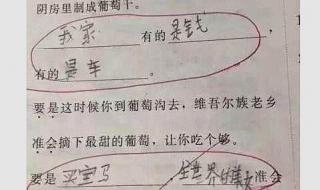 阴房里制成葡萄干。
我家 有的 是钱，
有的 是车。
要是这时候你到葡萄沟去，维吾尔族老乡
准会摘下最甜的葡萄，让你吃个够。
要是 买宝马，全世界的 准会